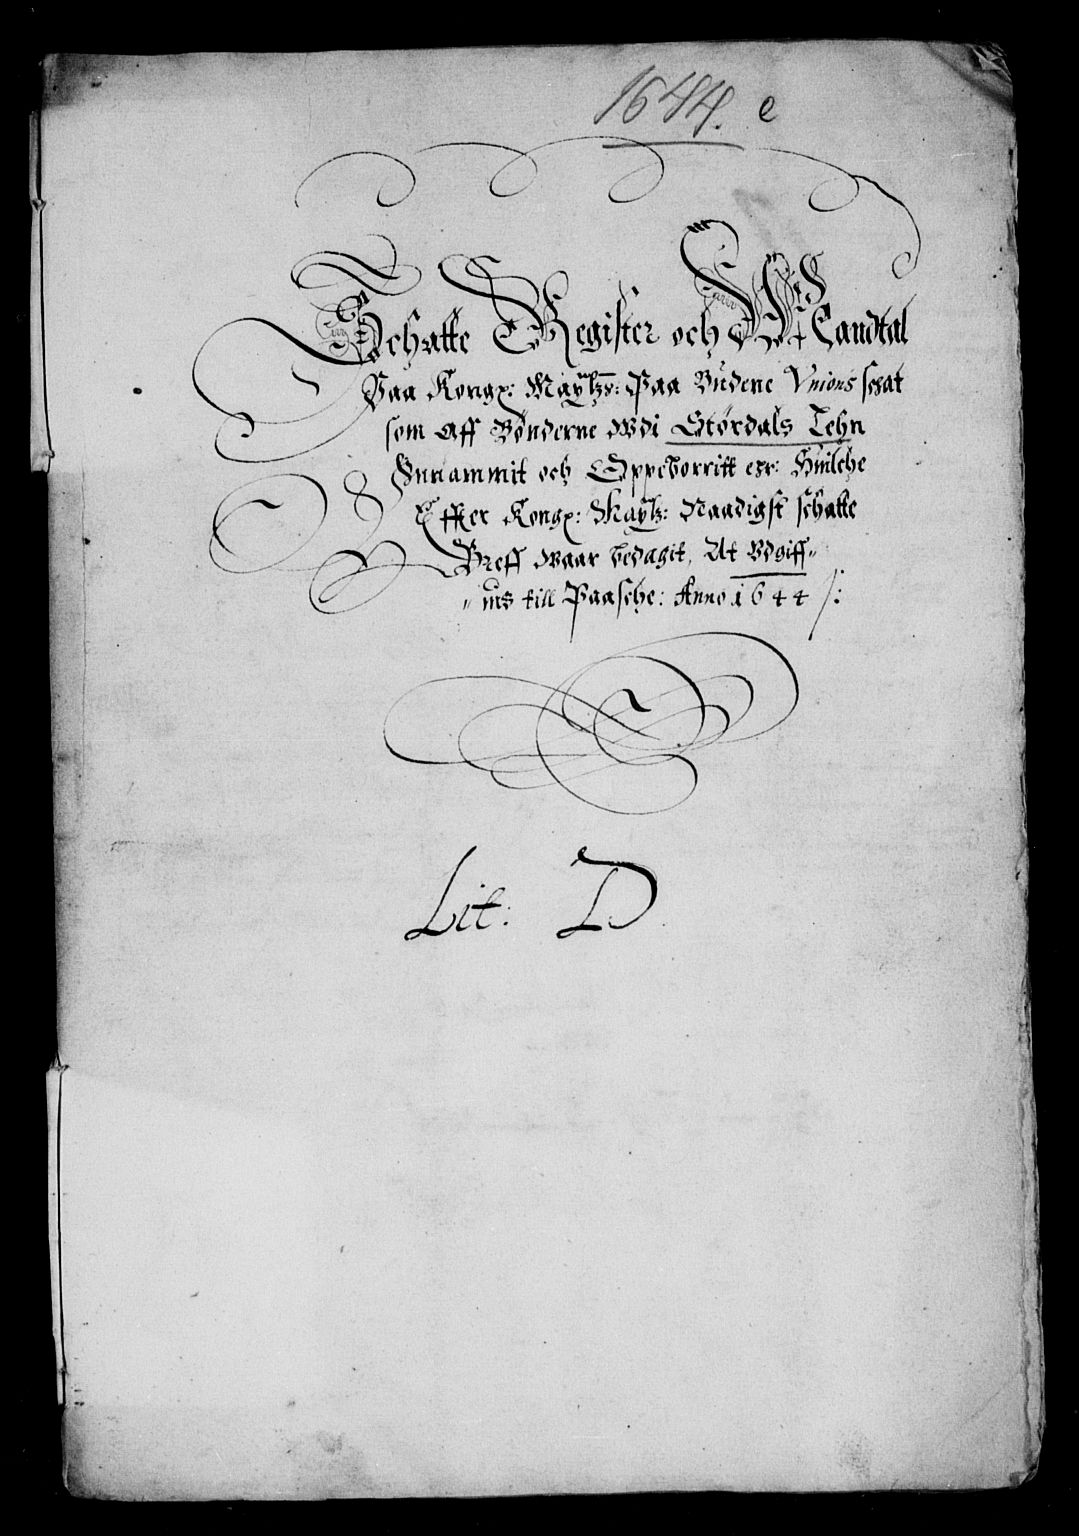 1644. e
Schatte Register och Mandtal
Paa Kongx: Maytz: Paa Budene Unions schat
som Aff Bønderne wdi Størdals Lehn
Innammit och Oppeborritt er: Huilche
Effter Kongx: Maytz: Naadigst schatte
Breff waar bedagit, At Vdgiff„
„uis till Paasche: Anno 1644 /:
Lit: D